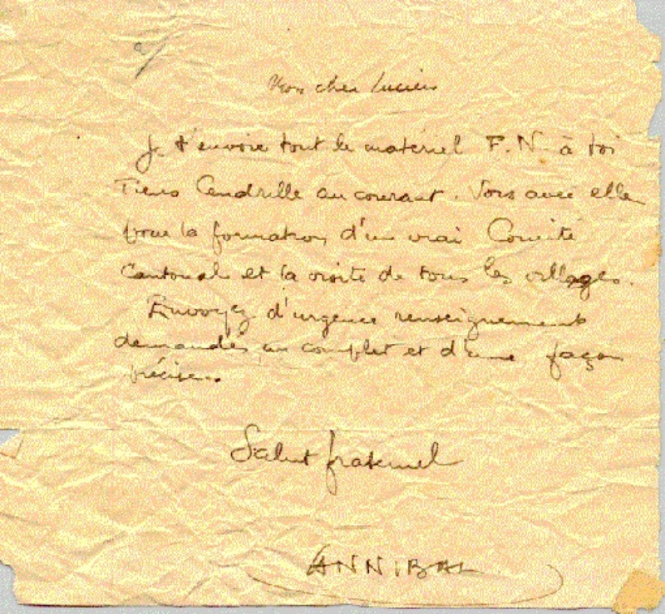 Mon cher Lucien
Je t'envoie tout le matériel F.N. à toi
Tiens Cendrille au courant. Vois avec elle
pour la formation d'un vrai Comité
Cantonal et la visite de tous les villages.
Envoyez d'urgence renseignements
demandés au complet et d'une façon
précise.
Salut fraternel
ANNIBAL